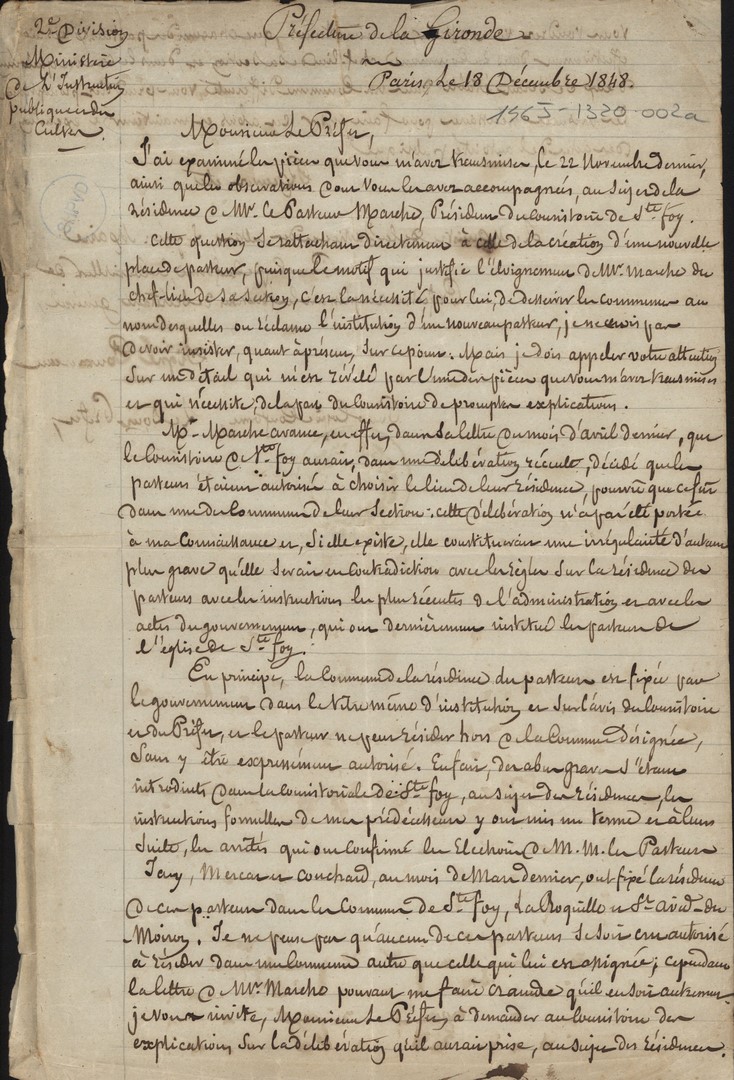 Préfecture de la Gironde
2e Division
Ministère
de L'Instruction
publique et des
Cultes.
Paris, Le 18 Décembre 1848.
1963-1320-002a
Monsieur Le Préfet,
J'ai examiné les pièces que vous m'avez transmises, le 22 Novembre dernier,
ainsi que les observations dont vous les avez accompagnées, au sujet de la
Résidence de Mr. Le Pasteur Marche, Président du Consistoire de Ste foy.
Cette question se rattachant directement à celle de la création d'une nouvelle
place de pasteur, puisque le motif qui justifie l'éloignement de Mr. Marche du
chef-lieu de sa section, c'est la nécessité pour lui, de desservir les communes au
nom desquelles on réclame l'institution d'un nouveau pasteur, je ne crois pas
devoir insister, quant à présent, sur ce point. Mais je dois appeler votre attention
sur un détail qui m'est révélé par l'une des pièces que vous m'avez transmises
et qui nécessite, de la part du Consistoire de promptes explications.
Mr. Marche avance, en effet, dans sa lettre du mois d'avril dernier, que
le Consistoire de Ste foy aurait, dans une délibération récente, décidé que les
pasteurs étaient autorisés à choisir le lieu de leur résidence, pourvu que ce fût
dans une des Communes de leur Section. cette délibération n'a pas été portée
à ma Connaissance et, si elle existe, elle constituerait une irrégularité d'autant
plus grave qu'elle serait en contradiction avec les règles sur la résidence des
pasteurs avec les instructions les plus récentes de l'administration et avec les
actes du gouvernement, qui ont dernièrement institué les pasteurs de
l'église de Ste foy.
En principe, la Commune de la résidence du pasteur est fixée par
le gouvernement dans le titre même d'institution et sur l'avis du Consistoire
et du Préfet, et le pasteur ne peut résider hors de la Commune désignée,
sans y être expressément autorisé. En fait, des abus graves s'étant
introduits dans la Consistoriale de Ste foy, au sujet des Résidences, les
instructions formelles de mes prédécesseurs y ont mis un terme et à leur
suite, les arrêtés qui ont confirmé les Elections de M.M. les Pasteurs
Jay, Mercat et Couchard, au mois de Mars dernier, ont fixé la résidence
de ces pasteurs dans les Communes de Ste foy, La Roquille et St. avid-du
Moiron. Je ne pense pas qu'aucun de ces pasteurs se soit cru autorisé
à résider dans une Commune autre que celle qui lui est assignée; cependant
la lettre de Mr. Marche pouvant me faire craindre qu'il en soit autrement
je vous invite, Monsieur Le Préfet, à demander au Consistoire des
explications sur la délibération qu'il aurait prise, au sujet des résidences.